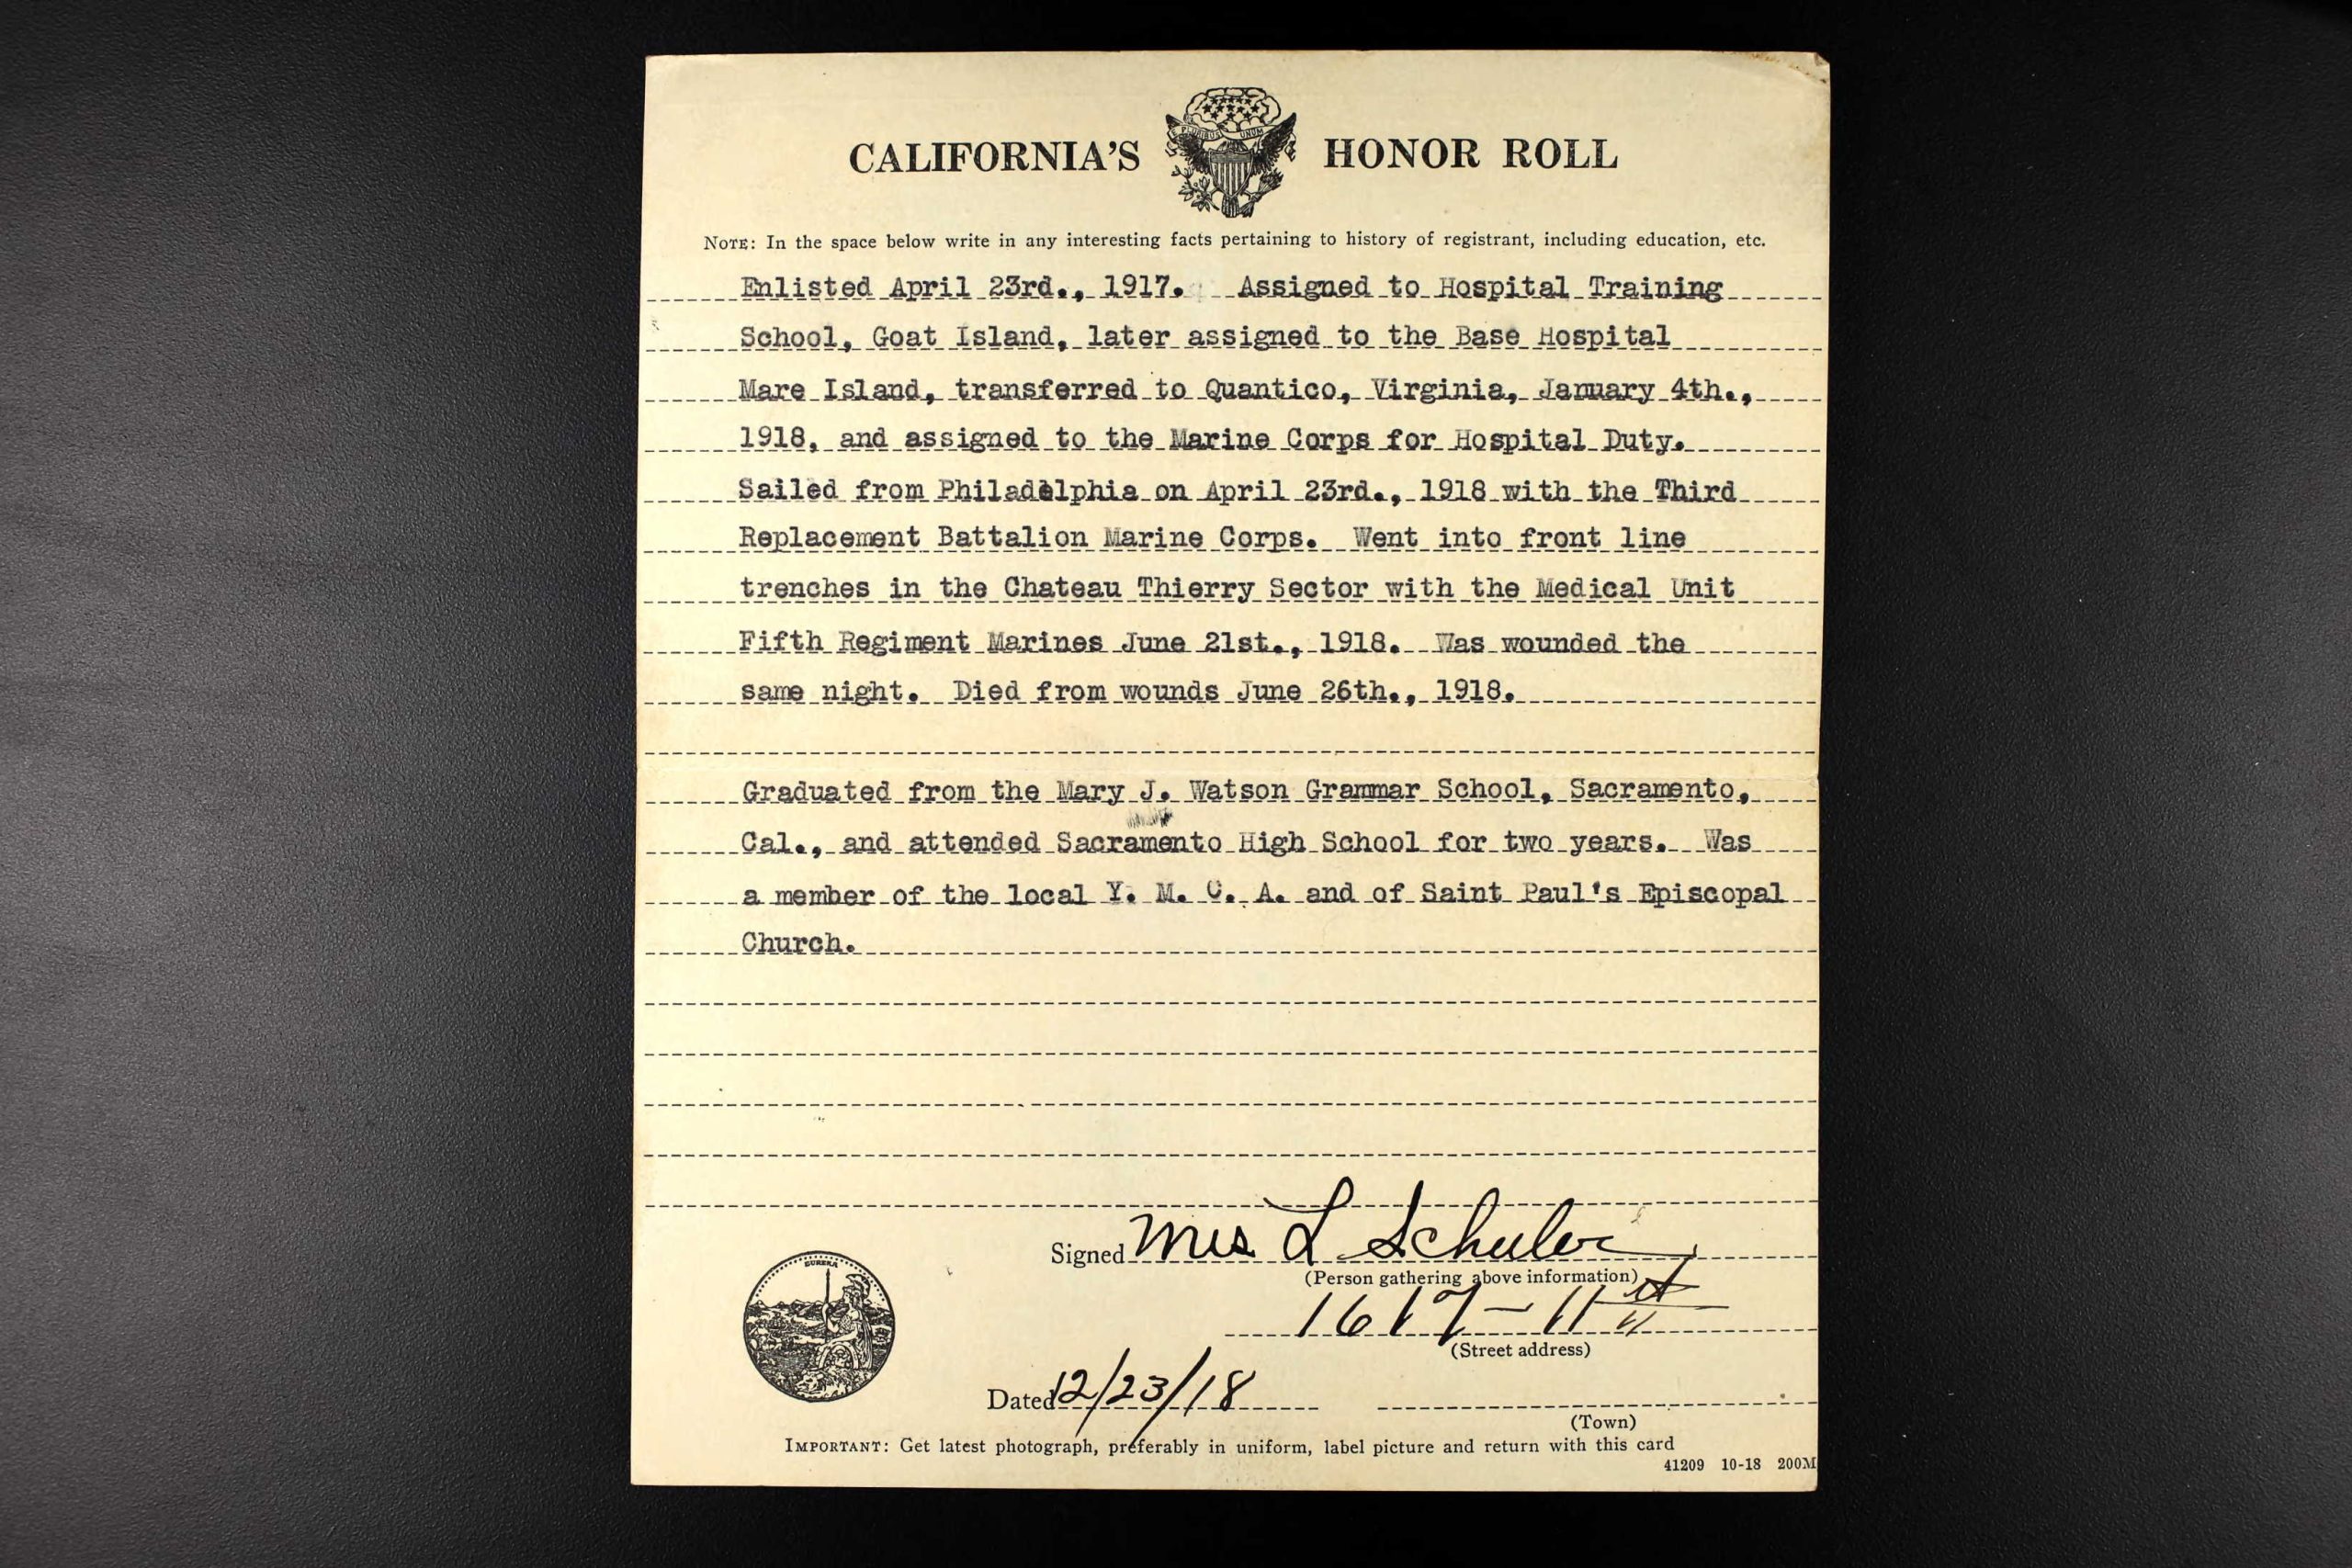 CALIFORNIA'S HONOR ROLL
E PLURIBUS UNUM
NOTE: In the space below write in any interesting facts pertaining to history of registrant, including education, etc.
Enlisted April 23rd., 1917. Assigned to Hospital Training
School, Goat Island, later assigned to the Base Hospital
Mare Island, transferred to Quantico, Virginia, January 4th.,
1918, and assigned to the Marine Corps for Hospital Duty.
Sailed from Philadelphia on April 23rd., 1918 with the Third
Replacement Battalion Marine Corps. Went into front line
trenches in the Chateau Thierry Sector with the Medical Unit
Fifth Regiment Marines June 21st., 1918. Was wounded the
same night. Died from wounds June 26th., 1918.
Graduated from the Mary J. Watson Grammar School, Sacramento,
Cal., and attended Sacramento High School for two years. Was
a member of the local Y. M. C. A. and of Saint Paul's Episcopal
Church.
Signed Mrs L Schuler
(Person gathering above information)
1617 - 11 st
(Street address)
EUREKA
Dated 12/23/18
(Town)
IMPORTANT: Get latest photograph, preferably in uniform, label picture and return with this card
41209 10-18 200M